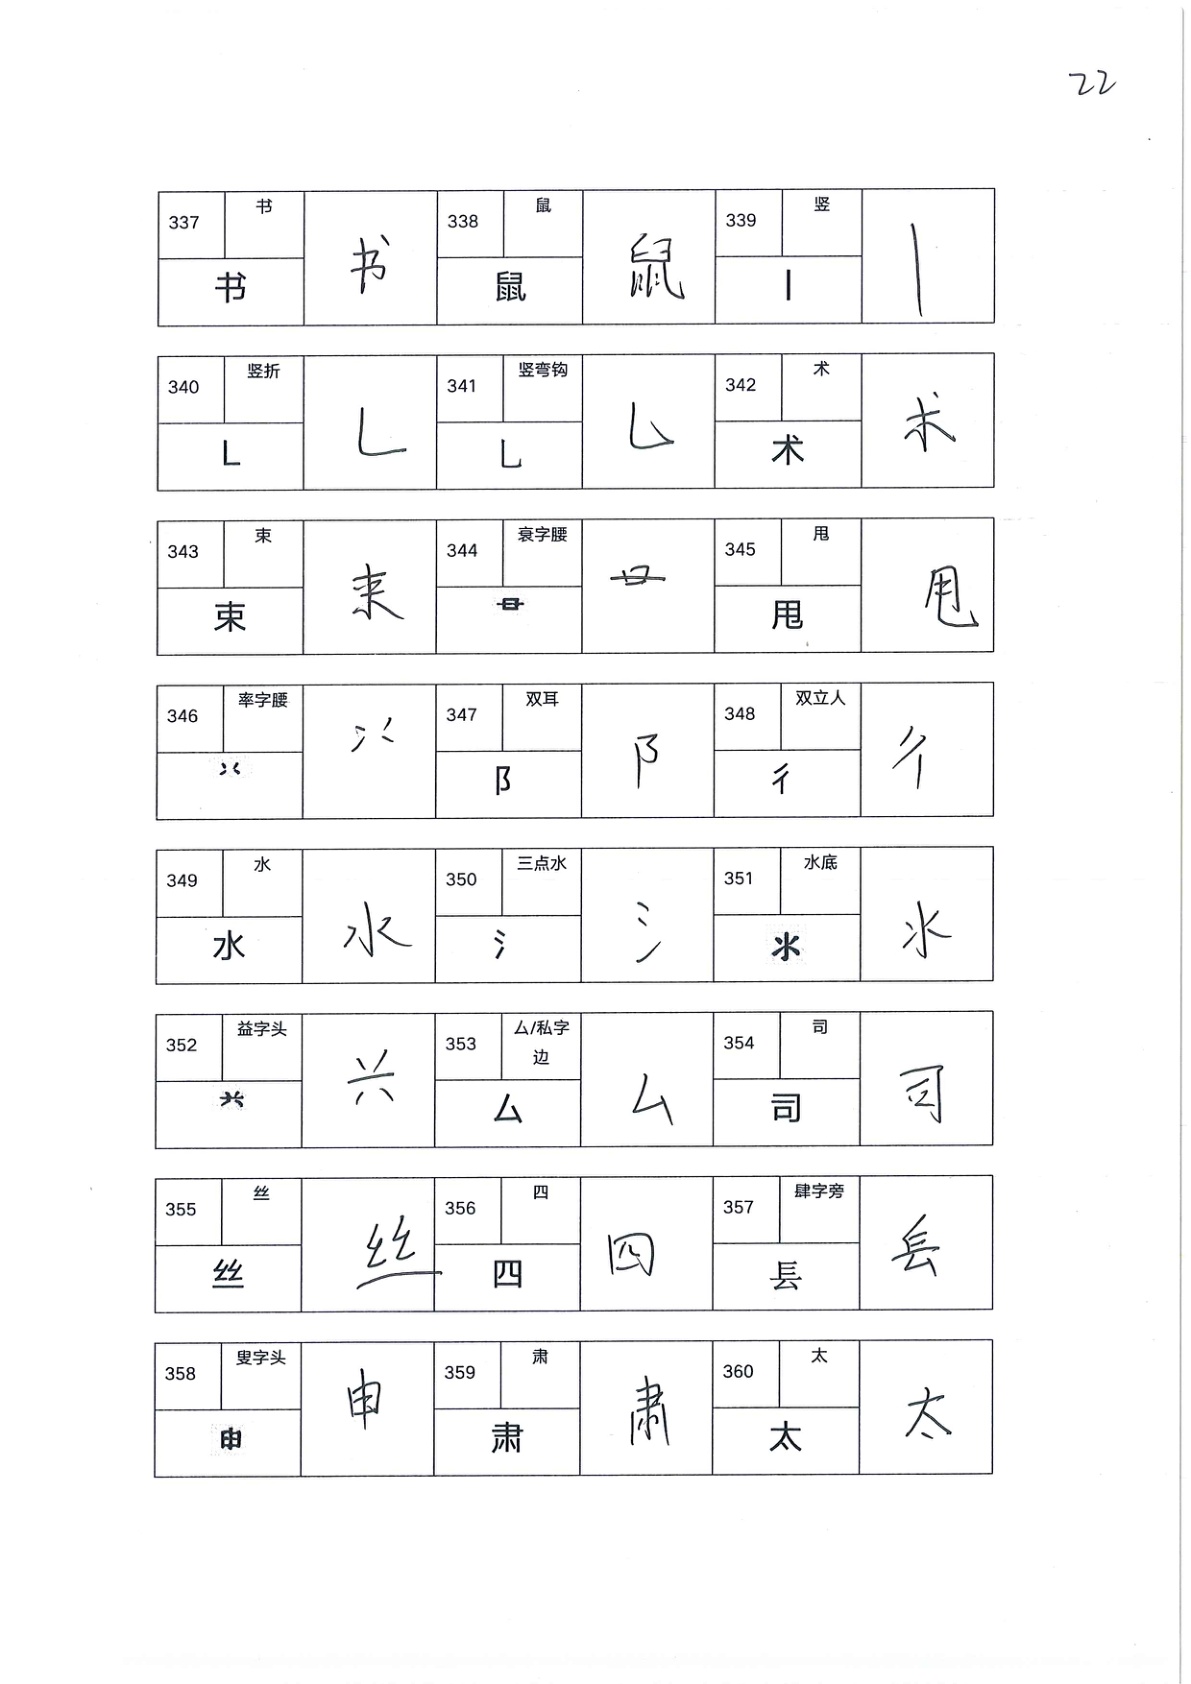 22
337 书 书 书 338 鼠 鼠 鼠 339 竖 丨 丨
340 竖折 𠃊 𠃊 341 竖弯钩 乚 乚 342 术 术 术
343 束 束 束 344 衰字腰 345 甩 甩 甩
346 率字腰 347 双耳 阝 阝 348 双立人 彳 彳
349 水 水 水 350 三点水 氵 氵 351 水底 氺 氺
352 益字头 353 厶/私字边 厶 厶 354 司 司 司
355 丝 丝 丝 356 四 四 四 357 肆字旁 镸 镸
358 叟字头 申 申 359 肃 肃 肃 360 太 太 太